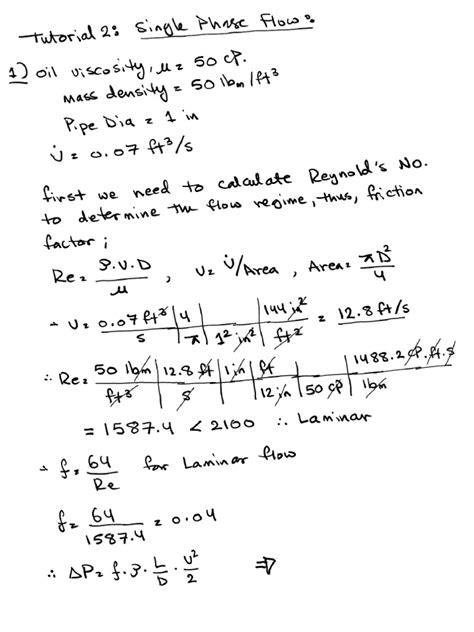 Tutorial 2: Single Phase Flow:
1) oil viscosity, μ = 50 cP.
mass density = 50 lbm/ft³
Pipe Dia = 1 in
U̇ = 0.07 ft³/s
first we need to calculate Reynold's No.
to determine the flow regime, thus, friction
factor;
Re = ρ.U.D / μ , U = U̇/Area , Area = πD²/4
∴ U = 0.07 ft³/s | 4/π | 1/1² in² | 144 in²/ft² = 12.8 ft/s
∴ Re = 50 lbm/ft³ | 12.8 ft/s | 1 in | ft/12 in | 1/50 cP | 1488.2 cP.ft.s/lbm
= 1587.4 < 2100 ∴ Laminar
∴ f = 64/Re for Laminar flow
f = 64/1587.4 = 0.04
∴ ΔP = f.ρ.L/D.U²/2 ⇒